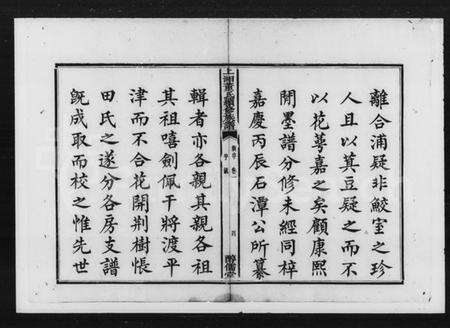 離合浦疑非鮫室之珍
人且以萁豆疑之而不
以花萼嘉之矣顧康熙
間墨譜分修未經同梓
嘉慶丙辰石潭公所纂
上湘董氏續修族譜
卷一
四
醇儒堂
輯者亦各親其親各祖
其祖嘻劍佩干將渡平
津而不合花開荆樹悵
田氏之遂分各房支譜
既成取而校之惟先世